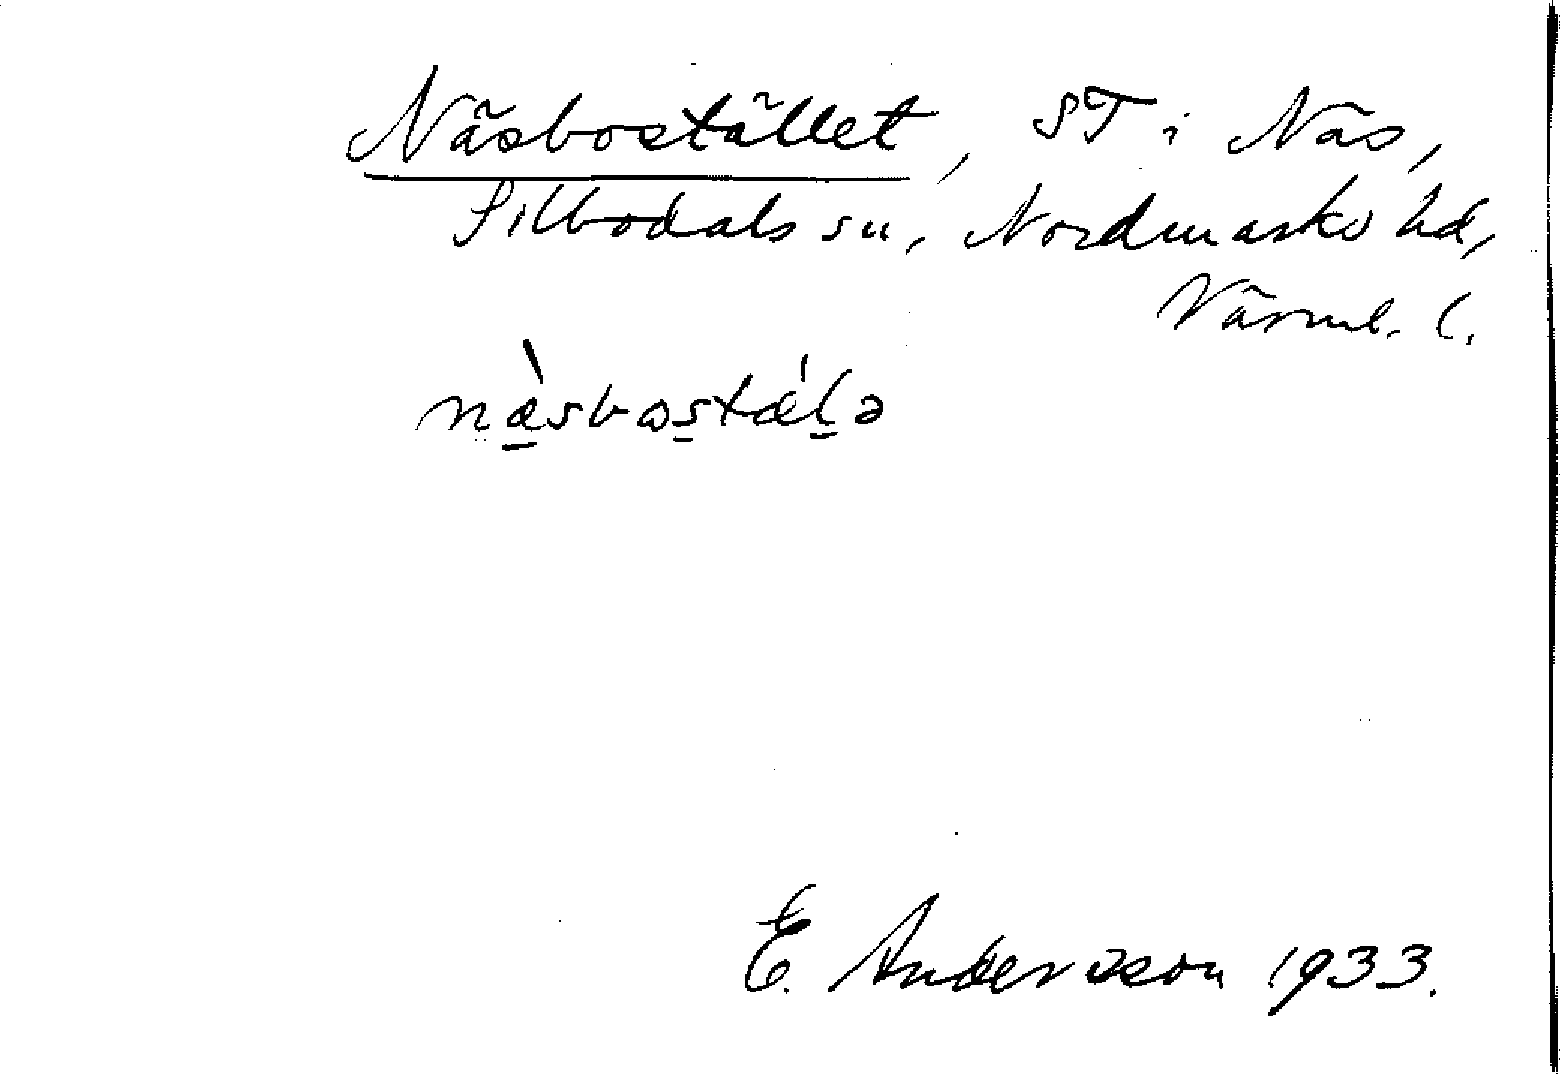 Näsbostället, ST i Näs,
Silbodals sn, Nordmarks hd,
Värml. l.
næ̠̀sbos̠tæ̍l̠ə
E. Andersson 1933.